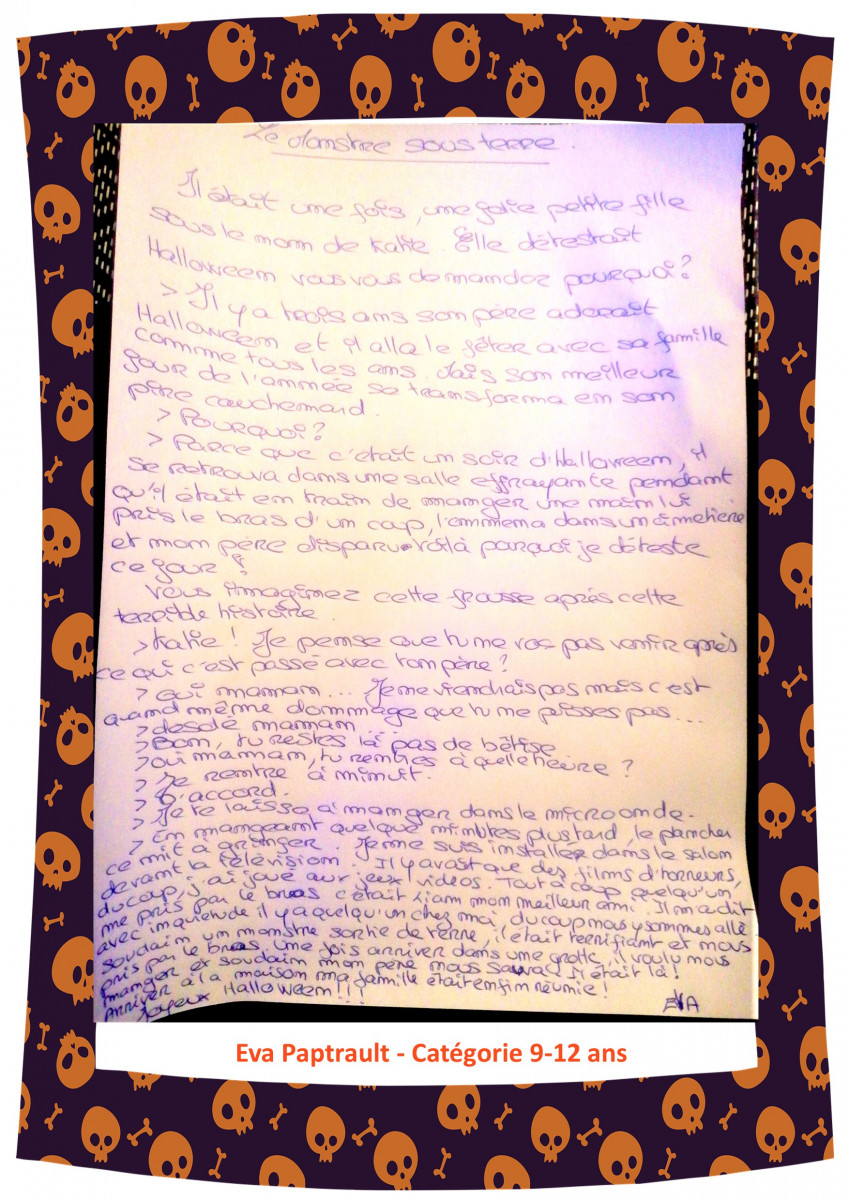 Le Monstre sous terre.
Il était une fois, une jolie petite fille
sous le nom de Katie. Elle détestait
Halloween vous vous demandez pourquoi?
> Il y a trois ans son père adorait
Halloween et il alla le fêter avec sa famille
comme tous les ans. Mais son meilleur
jour de l'année se transforma en son
pire cauchemard.
> Pourquoi?
> Parce que c'était un soir d'Halloween, il
se retrouva dans une salle effrayante pendant
qu'il était en train de manger une main lui
pris le bras d'un coup, l'emmena dans un cimetière
et mon père disparu. Voilà pourquoi je déteste
ce jour!
Vous imaginez cette frousse après cette
terrible histoire.
> Katie! Je pense que tu ne vas pas venir après
ce qui c'est passé avec ton père?
> Oui maman... Je ne viendrais pas mais c'est
quand même dommage que tu ne puisses pas...
> desolé maman...
> Bon, tu restes là pas de bêtise
> oui maman, tu rentres à quelle heure?
> Je rentre à minuit.
> D'accord.
> Je te laisse à manger dans le micro onde.
> En mangeant quelque minutes plus tard, le plancher
ce mit à grincer. Je me suis installée dans le salon
devant la télévision. Il y avait que des films d'horreurs,
du coup j'ai joué aux jeux vidéos. Tout à coup quelqu'un
me pris par le bras c'était Liam mon meilleur ami. Il m'a dit
avec inquiende il y a quelqu'un chez moi, du coup nous y sommes allé
soudain un monstre sortie de terre, il était terrifiant et nous
pris par le bras. Une fois arriver dans une grotte, il voulu nous
manger et soudain mon père nous sauva! Il était là!
Arriver à la maison ma famille était enfin réunie!
Joyeux Halloween!!!
EVA
Eva Paptrault - Catégorie 9-12 ans